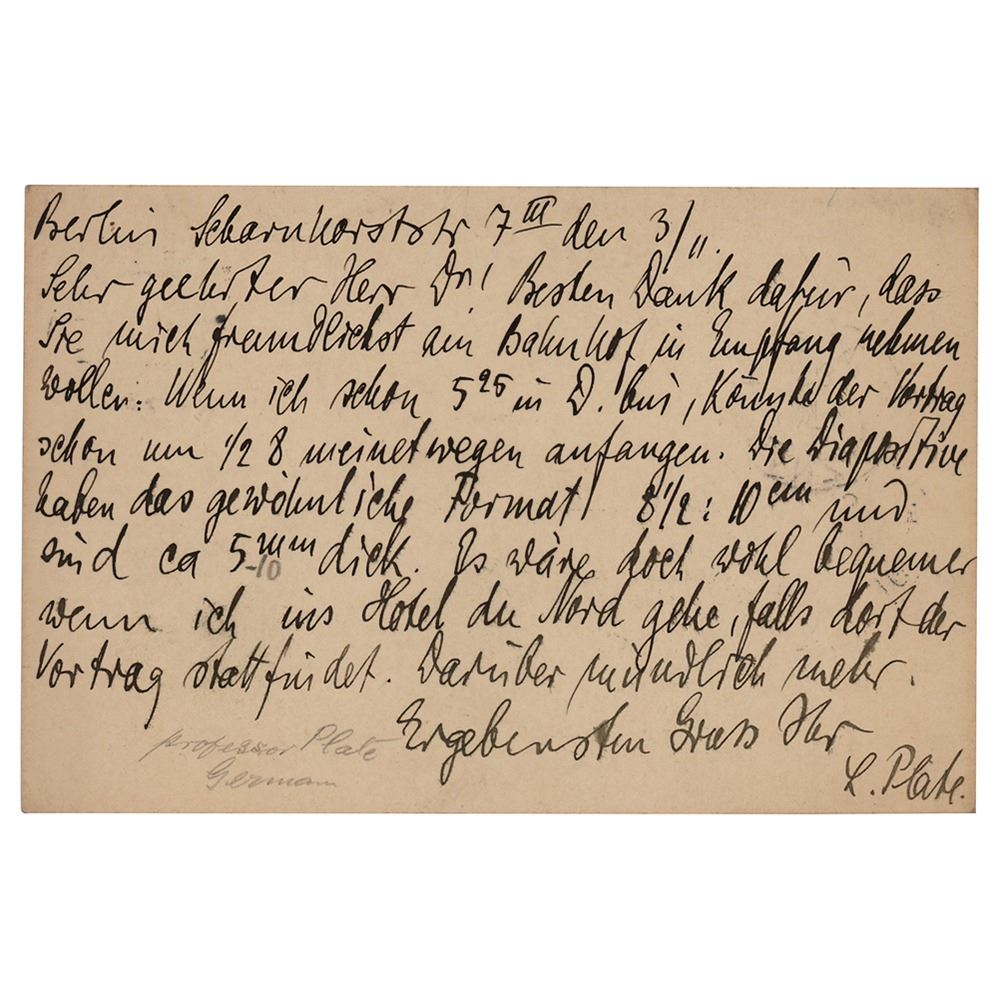 Berlin Scharnhorststr 7 III den 3/11.
Sehr geehrter Herr Dr! Besten Dank dafür, dass
Sie mich freundlichst am Bahnhof in Empfang nehmen
wollen. Wenn ich schon 5 25 in D. bin, könnte der Vortrag
schon um 1/2 8 meinetwegen anfangen. Die Diapositive
haben das gewöhnliche Format 8 1/2 : 10 cm und
sind ca 5 mm dick. Es wäre doch wohl bequemer
-10
wenn ich ins Hotel du Nord gehe, falls dort der
Vortrag stattfindet. Darüber mündlich mehr.
Ergebensten Gruss Ihr
L. Plate.
professor Plate
German